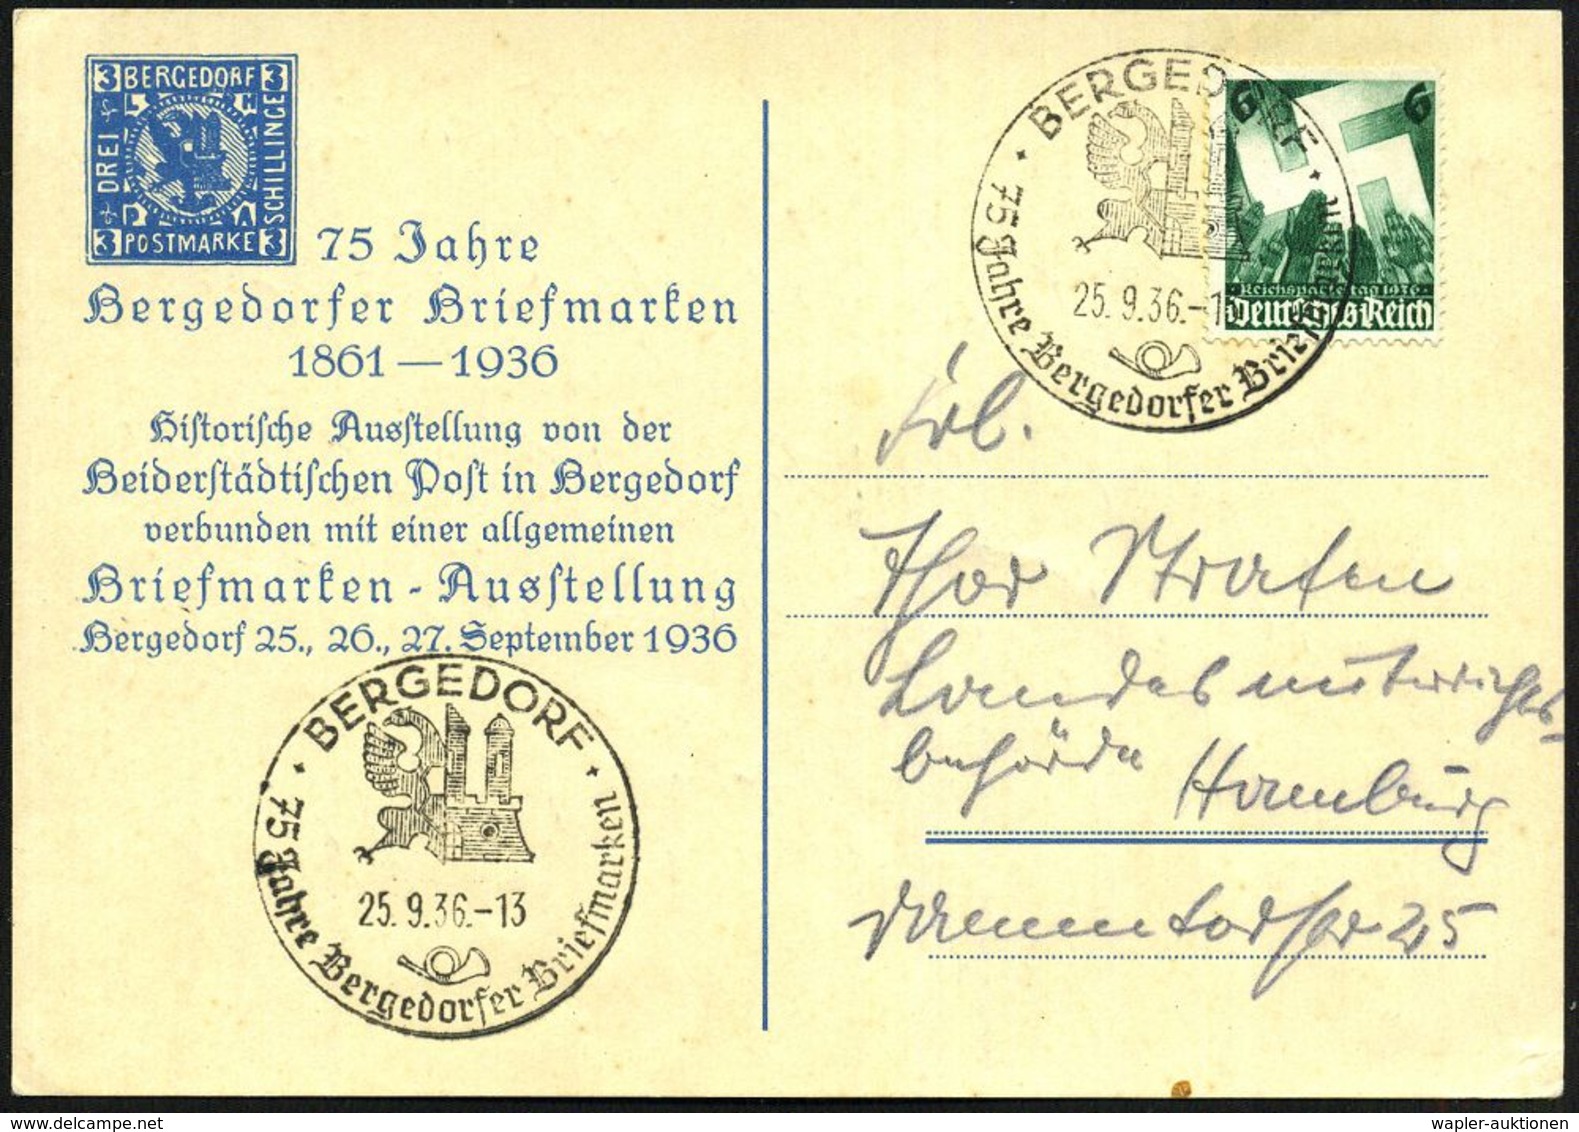 BERGEDORF
DREI
SCHILLINGE
POSTMARKE
3 3 3 3
L H P A
75 Jahre
Bergedorfer Briefmarken
1861 — 1936
Historische Ausstellung von der
Beiderstädtischen Post in Bergedorf
verbunden mit einer allgemeinen
Briefmarken - Ausstellung
Bergedorf 25., 26., 27. September 1936
BERGEDORF
25. 9. 36.-13
75 Jahre Bergedorfer Briefmarken
BERGEDORF
25. 9. 36.-13
75 Jahre Bergedorfer Briefmarken
6 6
Reichsparteitag 1936
Deutsches Reich
Frl.
Landesunterrichts-
behörde Hamburg
25
wapler-auktionen